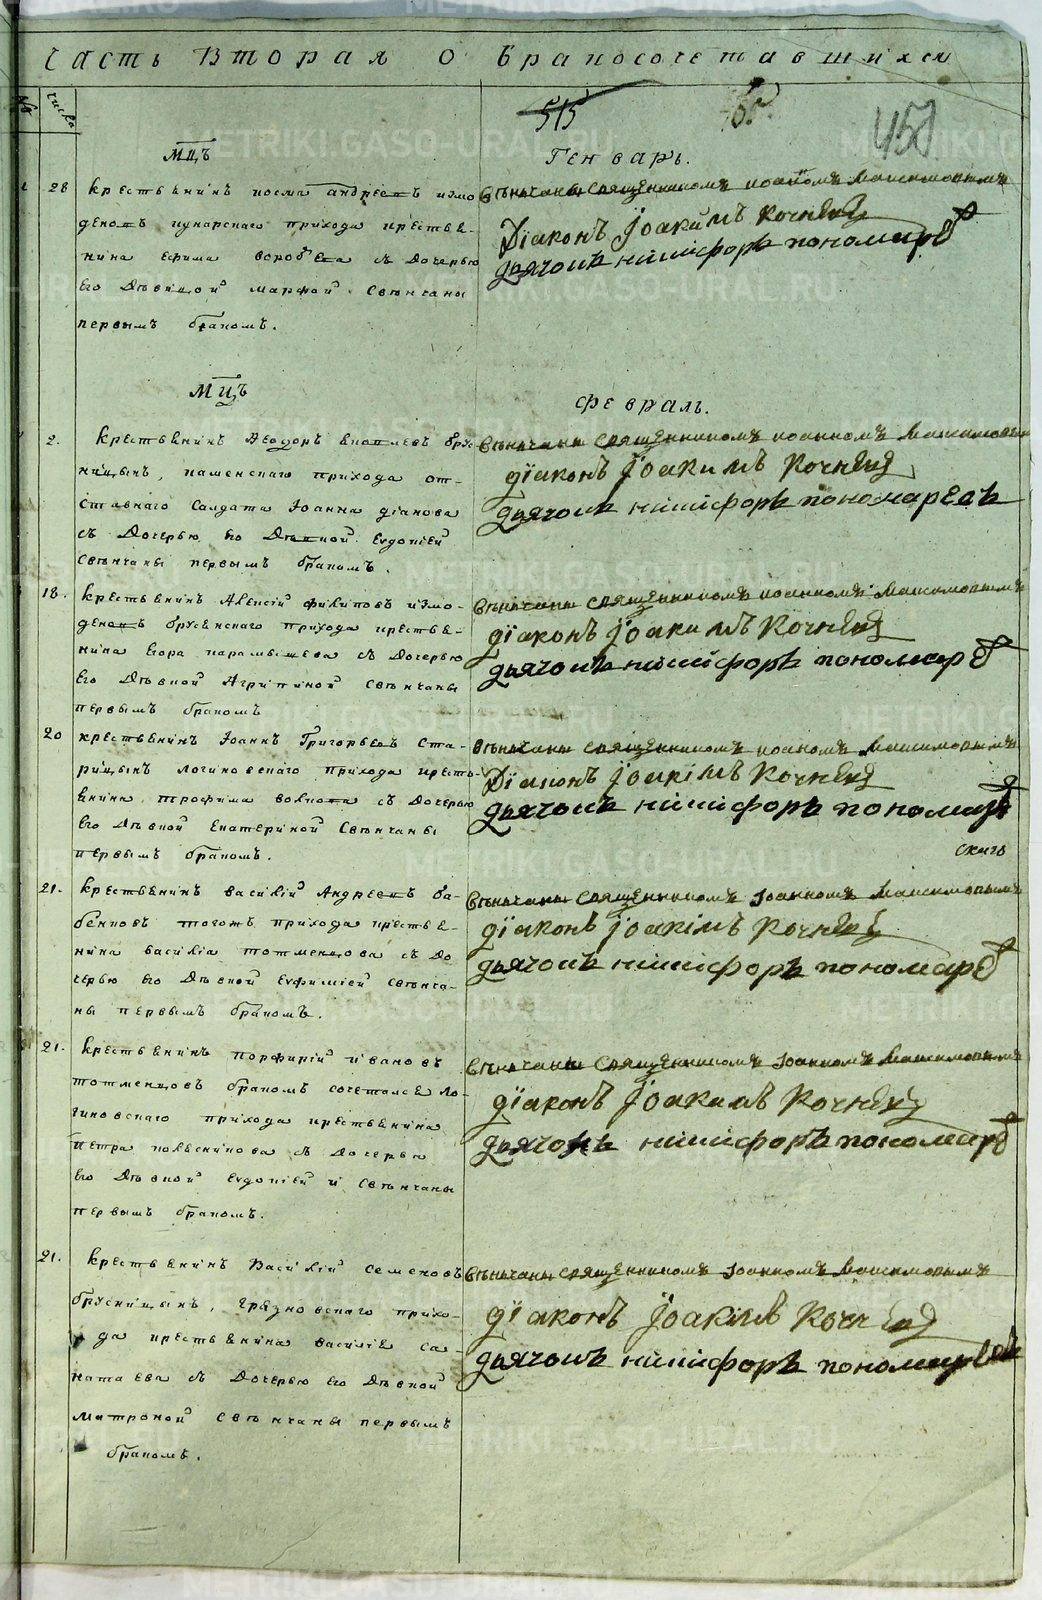 Часть Вторая о бракосочетавшихся
число
515
457
Мцъ Генварь.
28 крестьянинъ косма андреевъ измо
деновъ кунарскаго прихода крестья-
нина ефима воробьева съ дочерью
его дѣвицой марѳой свѣнчаны
первымъ бракомъ.
вѣнчаны священникомъ иоанномъ максимовымъ
Діаконъ Іоакимъ Кочневъ
дьячокъ никифоръ пономарев
Мцъ Февраль.
2. крестьянинъ Ѳеодоръ яковлевъ брус
ницынъ, каменскаго прихода от-
ставнаго Салдата Іоанна діакова
съ Дочерью его Дѣвкой Евдокіей
свѣнчаны первымъ бракомъ.
вѣнчаны священникомъ иоанномъ Максимовым
діаконъ Іоакимъ Кочневъ
дьячокъ никифоръ пономаревъ
18. крестьянинъ Алексій филиповъ измо-
деновъ брусенскаго прихода крестья-
нина егора съ дочерью
его дѣвкой Агрипиной свѣнчаны
первымъ бракомъ
вѣнчаны священникомъ иоанномъ Максимовымъ
діаконъ Іоакимъ Кочневъ
дьячокъ никифоръ пономарев
20 крестьянинъ Іоаннъ Григорьевъ Ста-
рицынъ логиновскаго прихода кресть-
янина трофима волкова съ дочерью
его дѣвкой екатериной свѣнчаны
первымъ бракомъ.
вѣнчаны священникомъ иоаномъ Максимовымъ
Діаконъ Іоакімъ Кочневъ
дьячокъ никифоръ пономарев
21. крестьянинъ василій Андреевъ ба-
бенковъ тогожъ прихода крестья-
нина василіа тотменцова съ до-
черью его дѣвкой евфиміей свѣнча-
ны первымъ бракомъ.
вѣнчаны священникомъ Іоанномъ Максимовымъ
діаконъ Іоакімъ Кочневъ
дьячокъ никифоръ пономарев
21. крестьянинъ порфирій ивановъ
тотменцовъ бракомъ сочетался ло-
гиновскаго прихода крестьянина
петра полескинова съ дочерью
его дѣвкой евдокіей и свѣнчаны
первымъ бракомъ.
вѣнчаны священникомъ Іоанномъ Максимовымъ
діаконъ Іоакимъ Кочневъ
дьячокъ никифоръ пономарев
21. крестьянинъ Василій семеновъ
брусницынъ, грязновскаго прихо-
да крестьянина василіа са-
натаева съ дочерью его дѣвкой
матроной свѣнчаны первымъ
бракомъ.
вѣнчаны священникомъ Іоанномъ Максимовымъ
діаконъ Іоакімъ Кочневъ
дьячокъ никифоръ пономаревъ